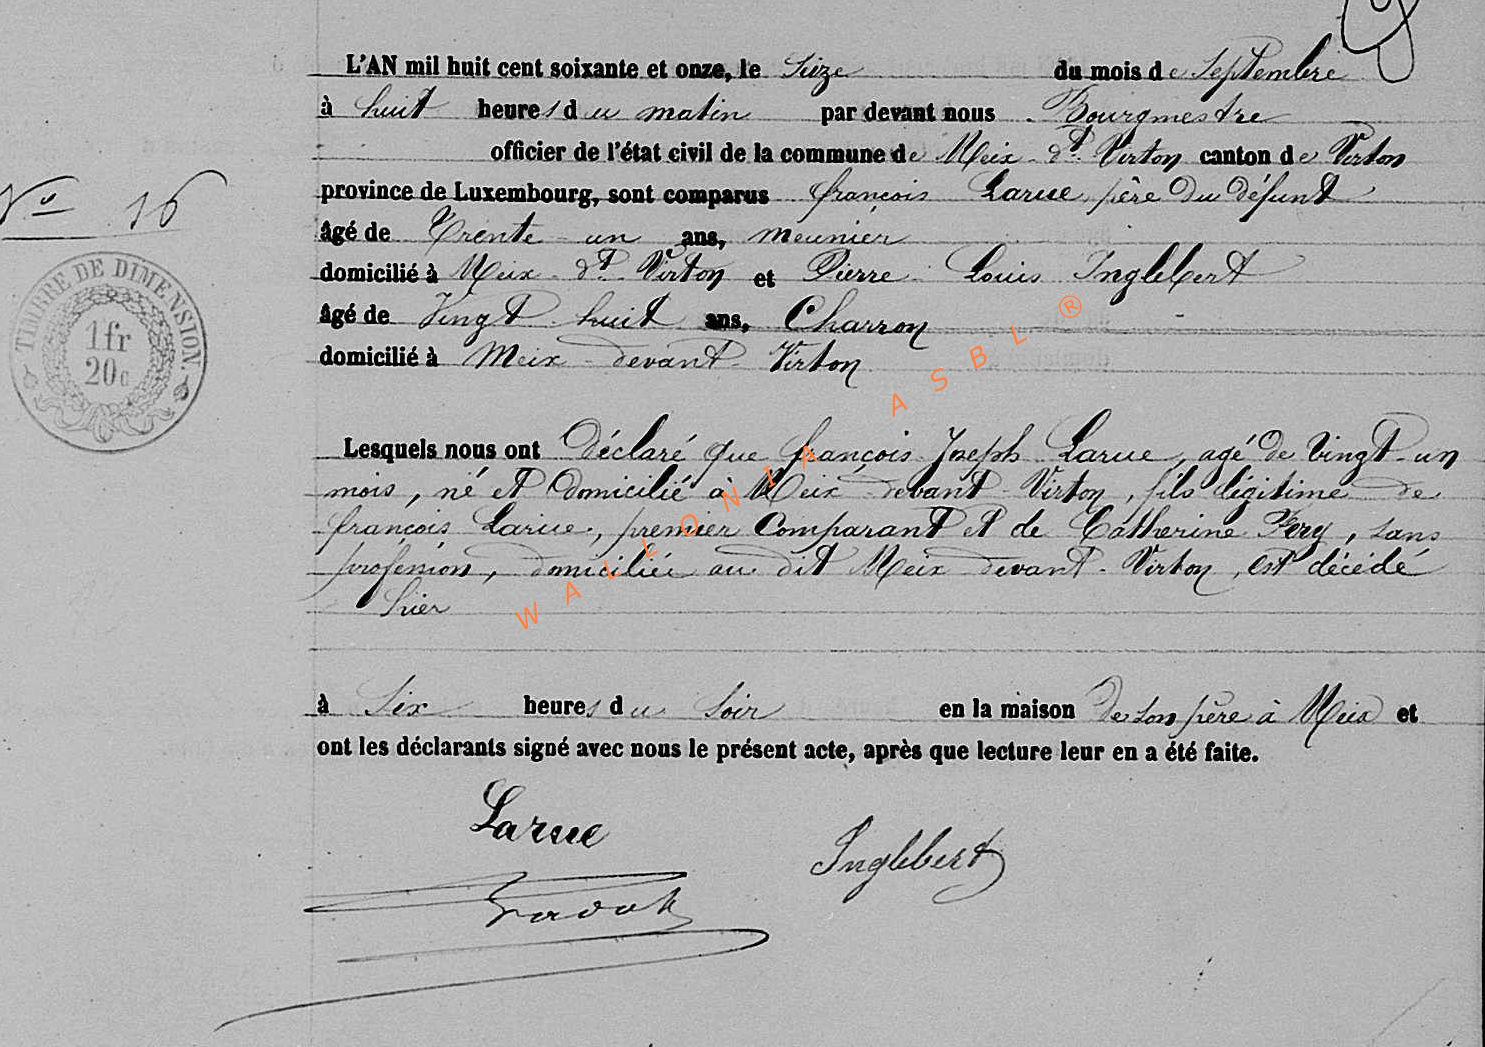 L'AN mil huit cent soixante et onze, le Seize du mois de Septembre
à huit heures du matin par devant nous Bourgmestre
officier de l'état civil de la commune de Meix-dt-Virton canton de Virton
province de Luxembourg, sont comparus françois Larue, père du défunt
âgé de Trente-un ans, meunier
domicilié à Meix-dt-Virton et Pierre-Louis Inglebert
âgé de Vingt-huit ans, Charron
domicilié à Meix-devant-Virton
No 16
TIMBRE DE DIMENSION.
1fr
20c
Lesquels nous ont déclaré que françois-Joseph Larue, agé de vingt-un
mois, né et domicilié à Meix-devant-Virton, fils légitime de
françois Larue, premier Comparant et de Catherine Fery, sans
profession, domiciliée au dit Meix-devant-Virton, est décédé
hier
à Six heures du Soir en la maison de son père à Meix et
ont les déclarants signé avec nous le présent acte, après que lecture leur en a été faite.
Larue
Inglebert
WALLONIA ASBL ®